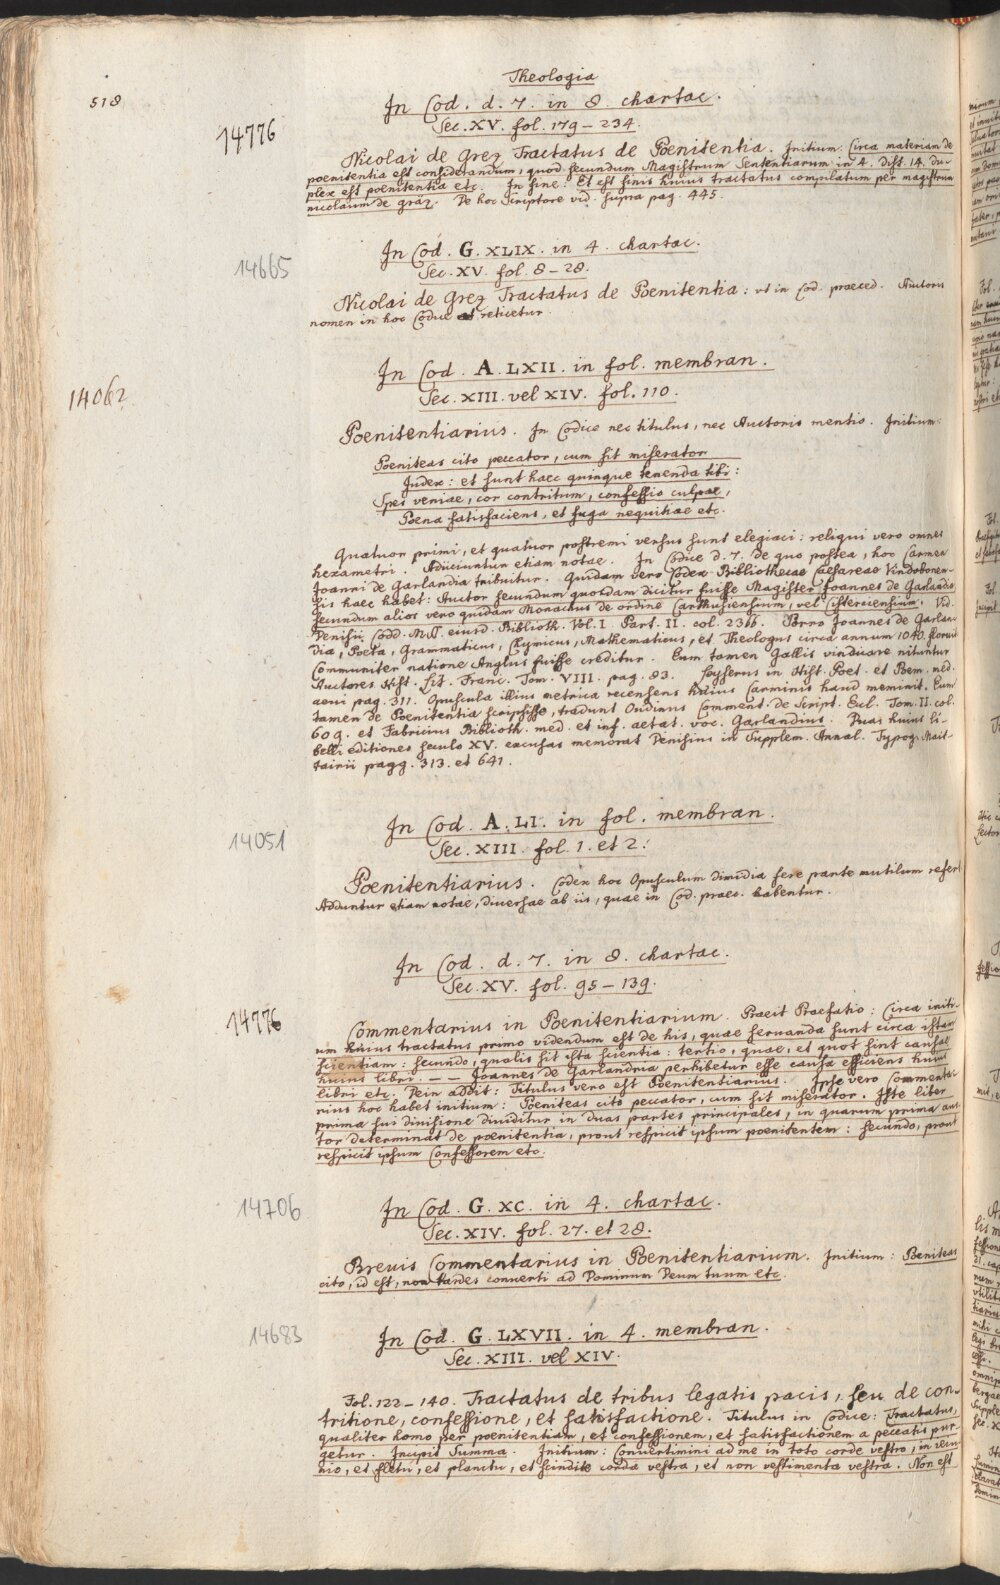 518
Theologia
In Cod. d. 7. in 8. chartac.
Sec. XV. fol. 179 – 234.
14776
Nicolai de Grez Tractatus de Poenitentia. Initium: Circa materiam de
poenitentia est considerandum, quod secundum Magistrum Sententiarum in 4. Dist. 14. du-
plex est poenitentia etc. In fine: Et est finis huius tractatus compilatum per magistrum
nicolaum de gräz. De hoc Scriptore vid. supra pag. 445.
In Cod. G. XLIX. in 4. chartac.
14665
Sec. XV. fol. 8 – 28.
Nicolai de Grez Tractatus de Poenitentia: ut in Cod. praeced. Auctoris
nomen in hoc Codice reticetur.
In Cod. A. LXII. in fol. membran.
14062
Sec. XIII. vel XIV. fol. 110.
Poenitentiarius. In Codice nec titulus, nec Auctoris mentio. Initium:
Poeniteas cito peccator, cum sit miserator
Iudex: et sunt haec quinque tenenda tibi:
Spes veniae, cor contritum, confessio culpae,
Poena satisfaciens, et fuga nequitiae etc.
Quatuor primi, et quatuor postremi versus sunt elegiaci: reliqui vero omnes
hexametri. Adiiciuntur etiam notae. In Codice d. 7. de quo postea, hoc Carmen
Joanni de Garlandia tribuitur. Quidam vero Codex Bibliothecae Caesareae Vindobonen-
sis haec habet: Auctor secundum quosdam dicitur fuisse Magister Joannes de Garlandia
secundum alios vero quidam Monachus de ordine Carthusiensium, vel Cisterciensium. Vid.
Denisii Codd. MSS. eiusd. Biblioth. Vol. I. Part. II. col. 2366. Porro Joannes de Garlan-
dia, Poeta, Grammaticus, Chymicus, Mathematicus, et Theologus circa annum 1040. floruit
Communiter natione Anglus fuisse creditur. Eum tamen Gallis vindicare nituntur
Auctores Hist. Lit. Franc. Tom. VIII. pag. 83. Leyserus in Hist. Poet. et Poem. med.
aevi pag. 311. Opuscula illius metrica recensens huius Carminis haud meminit. Eum
tamen de Poenitentia scripsisse, tradunt Oudinus Comment. de Script. Eccl. Tom. II. col.
609. et Fabricius Biblioth. med. et inf. aetat. voc. Garlandius. Duas huius li-
belli editiones seculo XV. excusas memorat Denisius in Supplem. Annal. Typogr. Mait-
tairii pagg. 313. et 641.
In Cod. A. LI. in fol. membran.
14051
Sec. XIII. fol. 1. et 2.
Poenitentiarius. Codex hoc Opusculum dimidia fere parte mutilum refert
Adduntur etiam notae, diversae ab iis, quae in Cod. praec. habentur.
In Cod. d. 7. in 8. chartac.
Sec. XV. fol. 95 – 139.
14776
Commentarius in Poenitentiarium. Praeit Praefatio: Circa initi-
um huius tractatus primo videndum est de his, quae servanda sunt circa istam
scientiam: secundo, qualis sit ista scientia: tertio, quae, et quot sint causae
huius libri. — — Joannes de Garlandria perhibetur esse causa efficiens huius
libri etc. Dein addit: Titulus vero est Poenitentiarius. Ipse vero Commenta-
rius hoc habet initium: Poeniteas cito peccator, cum sit miserator. Iste liber
prima sui divisione dividitur in duas partes principales, in quarum prima auc-
tor determinat de poenitentia, prout respicit ipsum poenitentem: secundo, prout
respicit ipsum Confessorem etc.
14706
In Cod. G. XC. in 4. chartac.
Sec. XIV. fol. 27. et 28.
Brevis Commentarius in Poenitentiarium. Initium: Poeniteas
cito, id est, non tardes converti ad Dominum Deum tuum etc.
14683
In Cod. G. LXVII. in 4. membran.
Sec. XIII. vel XIV.
Fol. 122 – 140. Tractatus de tribus legatis pacis, seu de con-
tritione, confessione, et satisfactione. Titulus in Codice: Tractatus,
qualiter homo per poenitentiam, et confessionem, et satisfactionem a peccatis pur-
getur. Incipit Summa. Initium: Convertimini ad me in toto corde vestro, in ieiu-
nio, et fletu, et planctu, et scindite corda vestra, et non vestimenta vestra. Non est